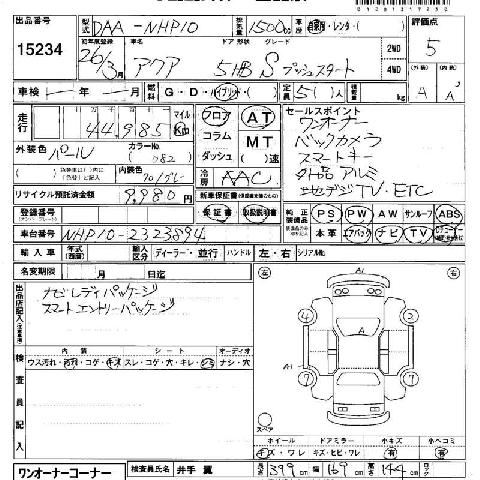 出品番号
15234
型式 DAA-NHP10
排気量 1500cc
自家用・レンタ・( )
評価点
5
初年度登録 26年3月
車名 アクア
ドア 形状 グレード
5HB Sプッシュスタート
2WD
4WD
(外装) (内装)
A A'
車検 年 月
燃料 G・D・ハイブリット・( )
定員 5( )人
積載量 kg
走行 44,985 マイル Km
フロア
コラム
ダッシュ
AT
MT
( )速
セールスポイント
ワンオーナー
バックカメラ
スマートキー
外品アルミ
地デジTV・ETC
外装色 パール
カラーNo. (082)
内装色
冷房 AAC
リサイクル預託済金額 9,980円
新車保証書(
保証書・取扱説明書
登録番号
純正装備品 PS PW AW サンルーフ ABS
本革 エアバック ナビ TV
車台番号 NHP10-2323894
輸入車 年式(西暦) 輸入区分 ディーラー・並行 ハンドル 左・右 シリアルNo.
名変期限 月 日迄
出品店記入
ナビレディパッケージ
スマートエントリーパッケージ
検査員記入
内装 シート オーディオ
ウス汚れ・汚れ・コゲ・キズ スレ・コゲ・穴・キレ・シミ ナシ・穴
左 右
A1
A
A1
4 7 2 7
スペア
ホイール ドアミラー 小キズ 小ヘコミ
キズ・ワレ キズ・ヒビ・ワレ 有 有
ワンオーナーコーナー
検査員氏名 井手 翼
長さ 399cm 幅 169cm 高さ 144cm